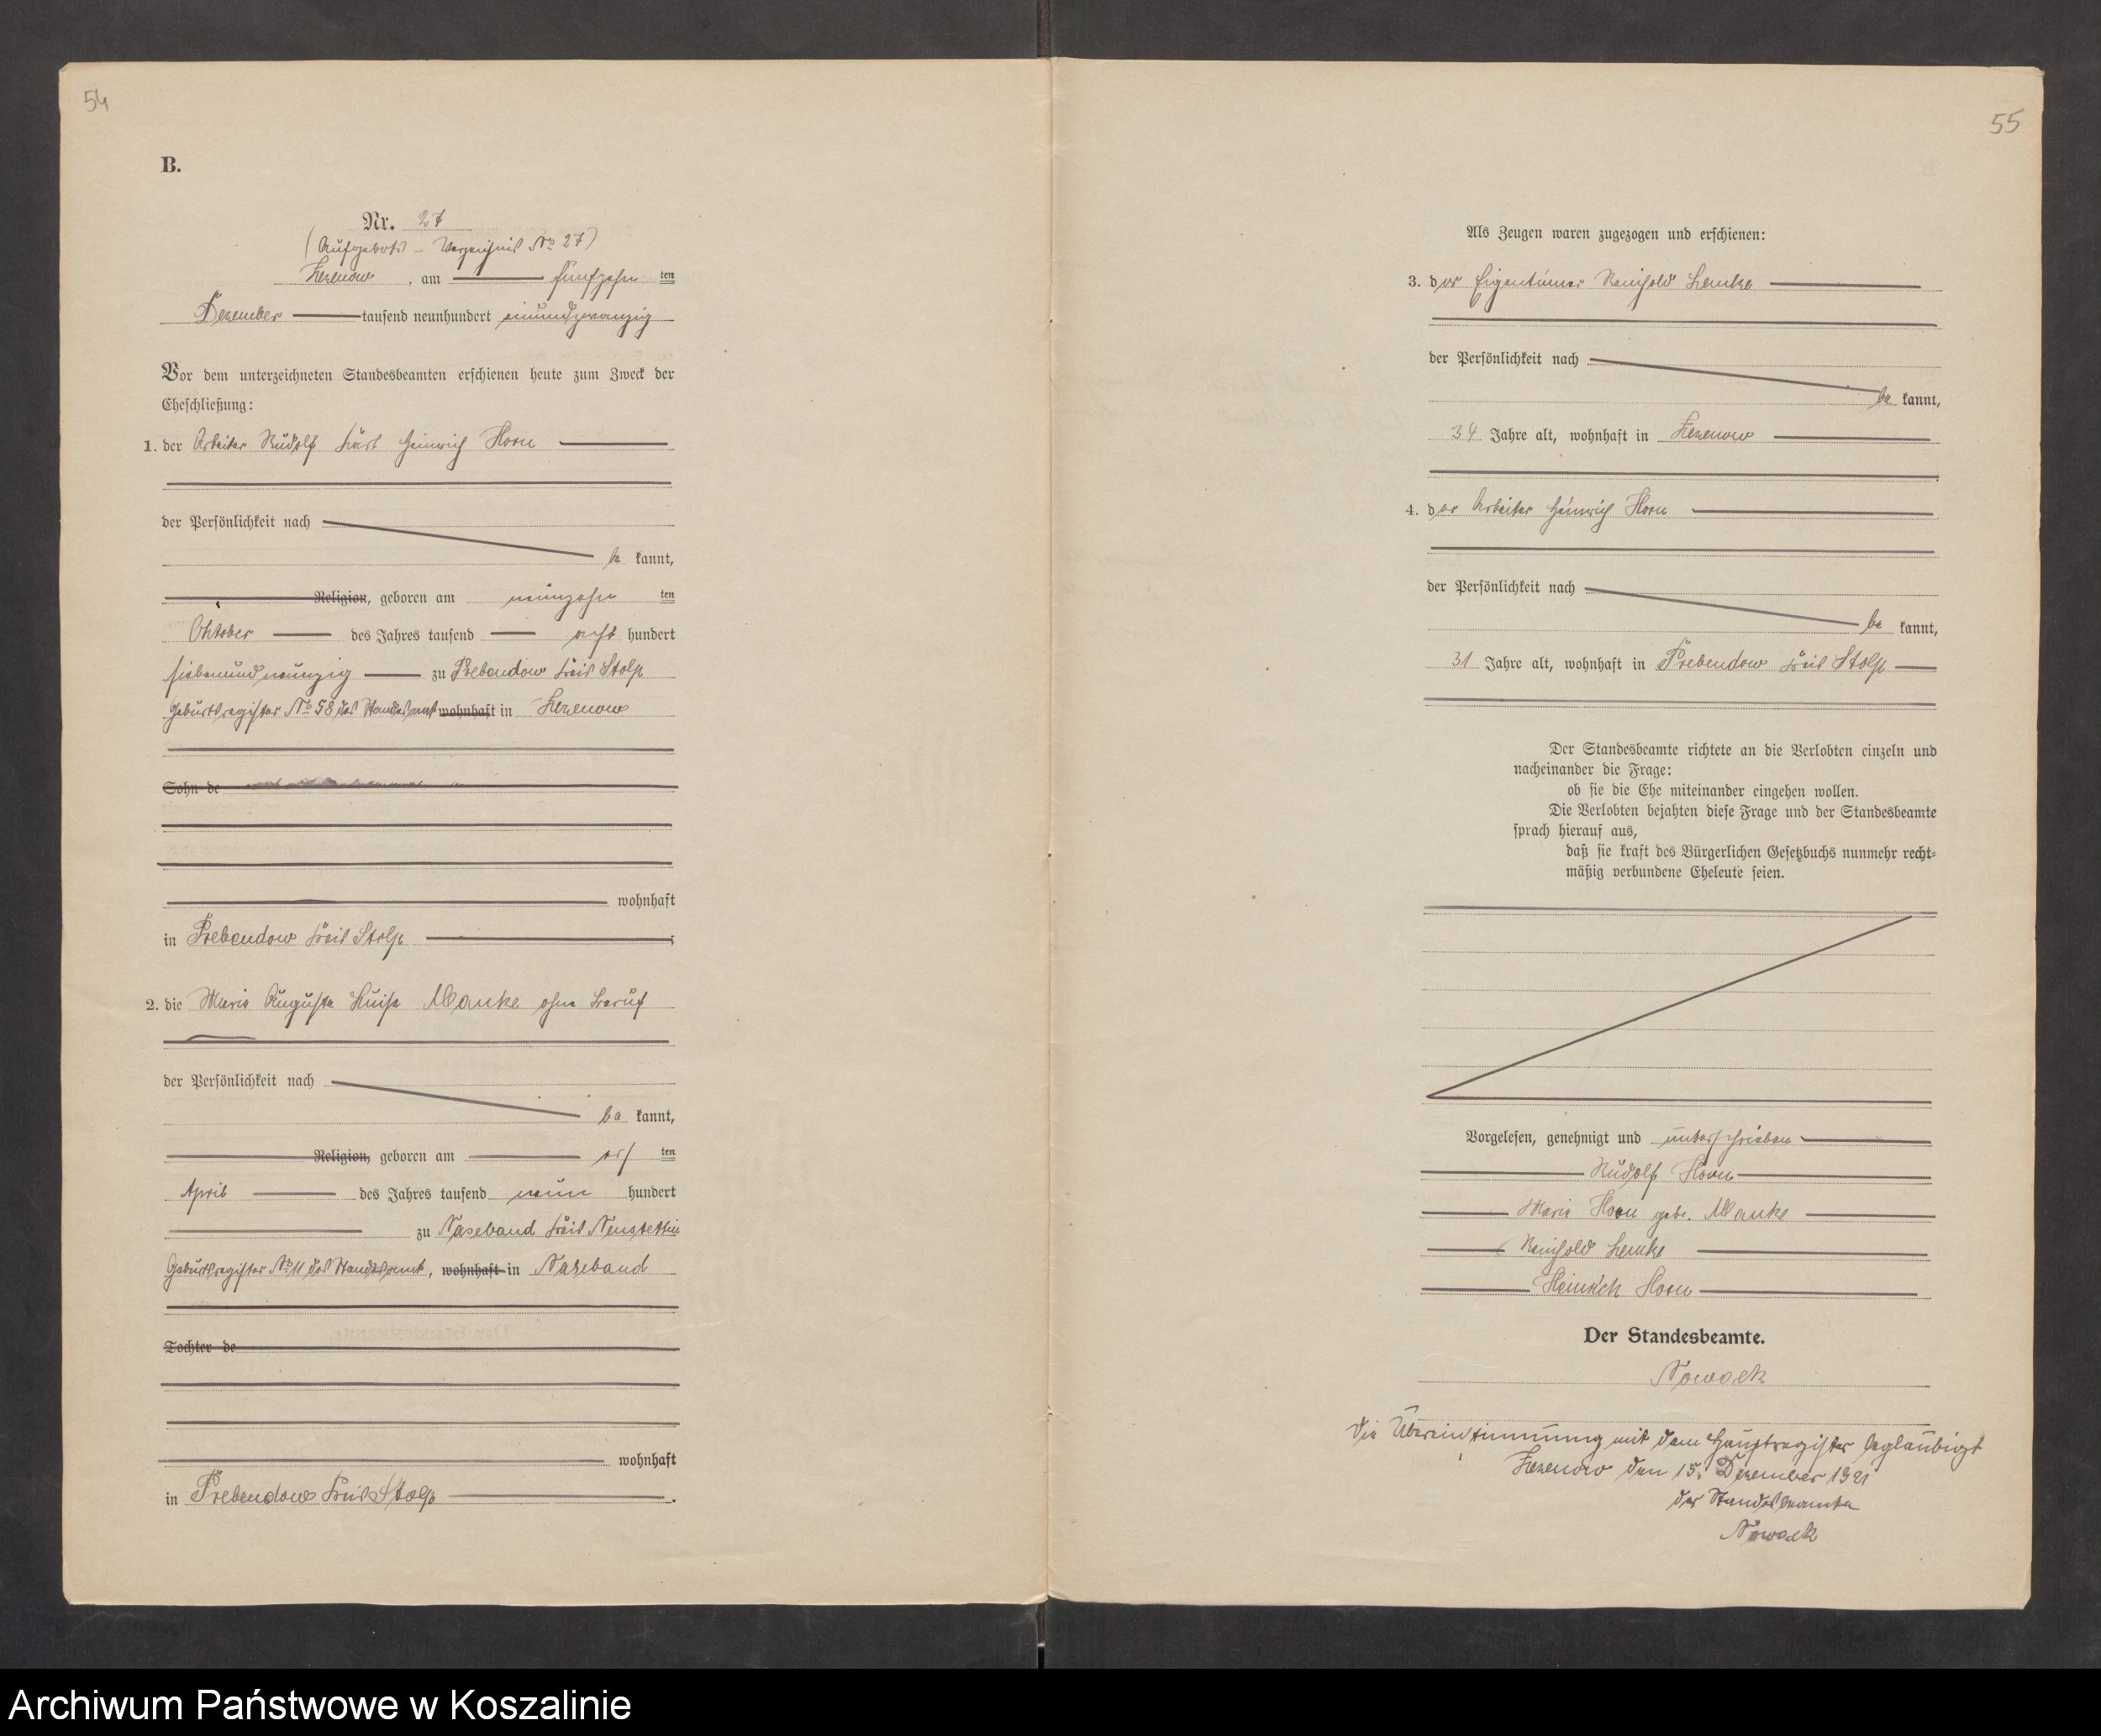 54
B.
Nr. 27
(Aufgebots - Verzeichnis No 27)
Zezenow, am fünfzehn ten
Dezember tausend neunhundert einundzwanzig
Vor dem unterzeichneten Standesbeamten erschienen heute zum Zweck der
Eheschließung:
1. der Arbeiter Rudolf Karl Heinrich Horn
der Persönlichkeit nach
be kannt,
Religion, geboren am neunzehn ten
Oktober des Jahres tausend acht hundert
siebenundneunzig zu Prebendow Kreis Stolp
Geburtsregister No 58 des Standesamt wohnhaft in Zezenow
Sohn de
wohnhaft
in Prebendow Kreis Stolp ;
2. die Marie Auguste Luise Manke ohne Beruf
der Persönlichkeit nach
be kannt,
Religion, geboren am ers ten
April des Jahres tausend neun hundert
zu Naseband Kreis Neustettin
Geburtsregister No 11 des Standesamt, wohnhaft in Naseband
Tochter de
wohnhaft
in Prebendow Kreis Stolp .
55
Als Zeugen waren zugezogen und erschienen:
3. der Eigentümer Reinhold Lemke
der Persönlichkeit nach
be kannt,
34 Jahre alt, wohnhaft in Zezenow
4. der Arbeiter Heinrich Horn
der Persönlichkeit nach
be kannt,
31 Jahre alt, wohnhaft in Prebendow Kreis Stolp
Der Standesbeamte richtete an die Verlobten einzeln und
nacheinander die Frage:
ob sie die Ehe miteinander eingehen wollen.
Die Verlobten bejahten diese Frage und der Standesbeamte
sprach hierauf aus,
daß sie kraft des Bürgerlichen Gesetzbuchs nunmehr recht-
mäßig verbundene Eheleute seien.
Vorgelesen, genehmigt und unterschrieben
Rudolf Horn
Marie Horn geb. Manke
Reinhold Lemke
Heinrich Horn
Der Standesbeamte.
Nowack
Die Übereinstimmung mit dem Hauptregister beglaubigt
Zezenow den 15. Dezember 1921
der Standesbeamte
Nowack
Archiwum Państwowe w Koszalinie